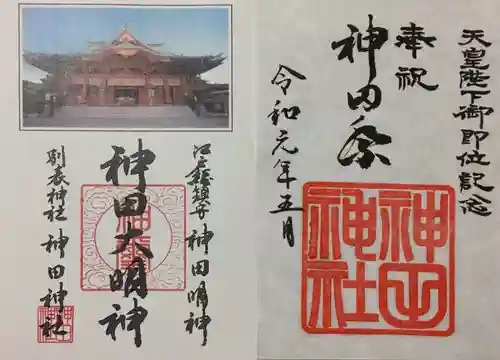 天皇陛下御即位記念
奉祝
神田祭
令和元年五月
神田神社
江戸総鎮守 神田明神
神田大明神
別表神社 神田神社